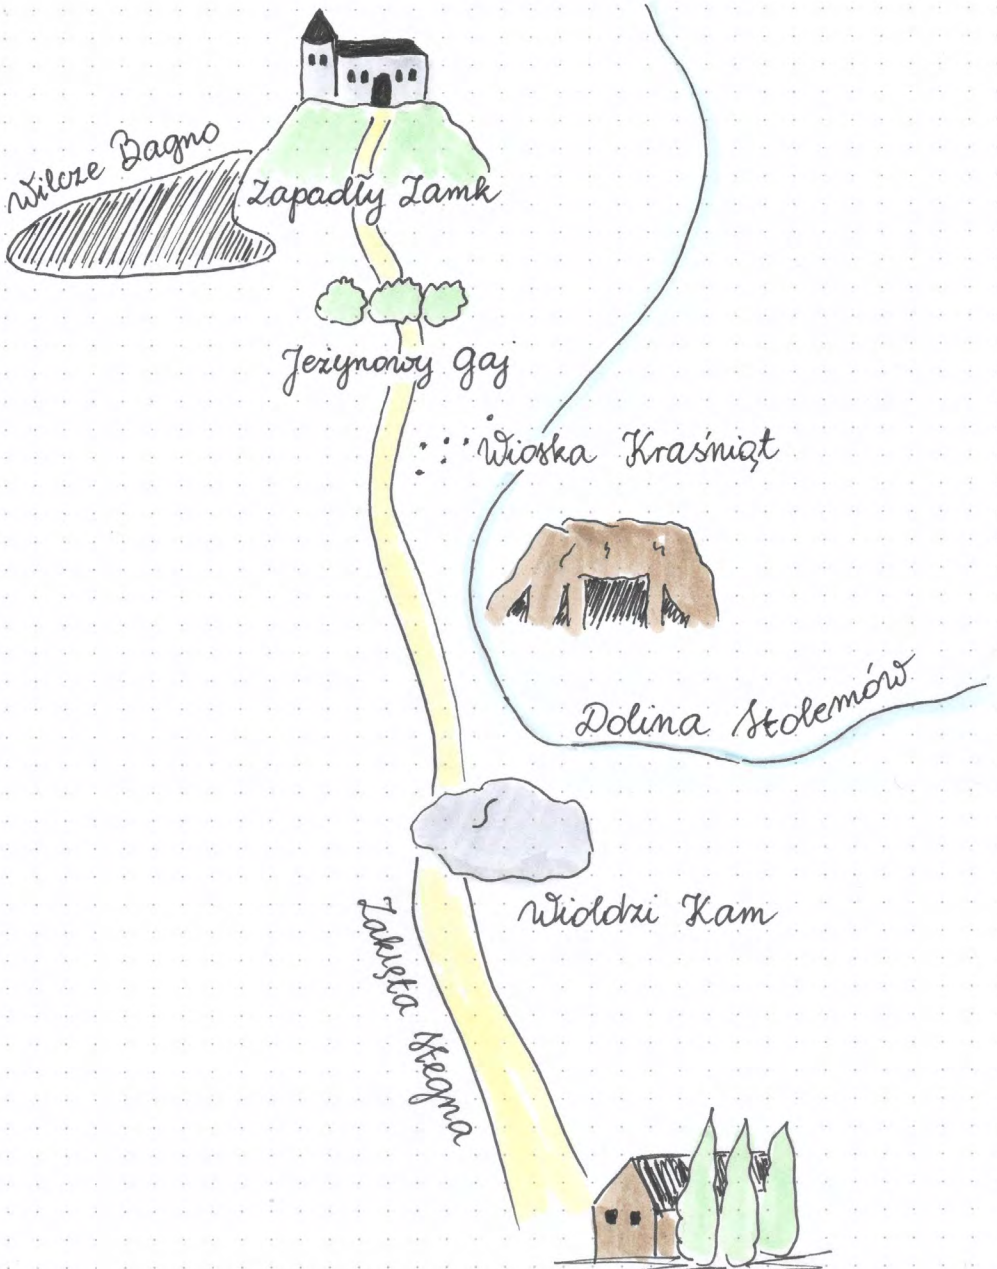 Wilcze Bagno
Zapadły Zamk
Jeżynowy Gaj
Wioska Kraśniąt
Dolina Stolemów
Wioldzi Kam
Zaklęta Stegna